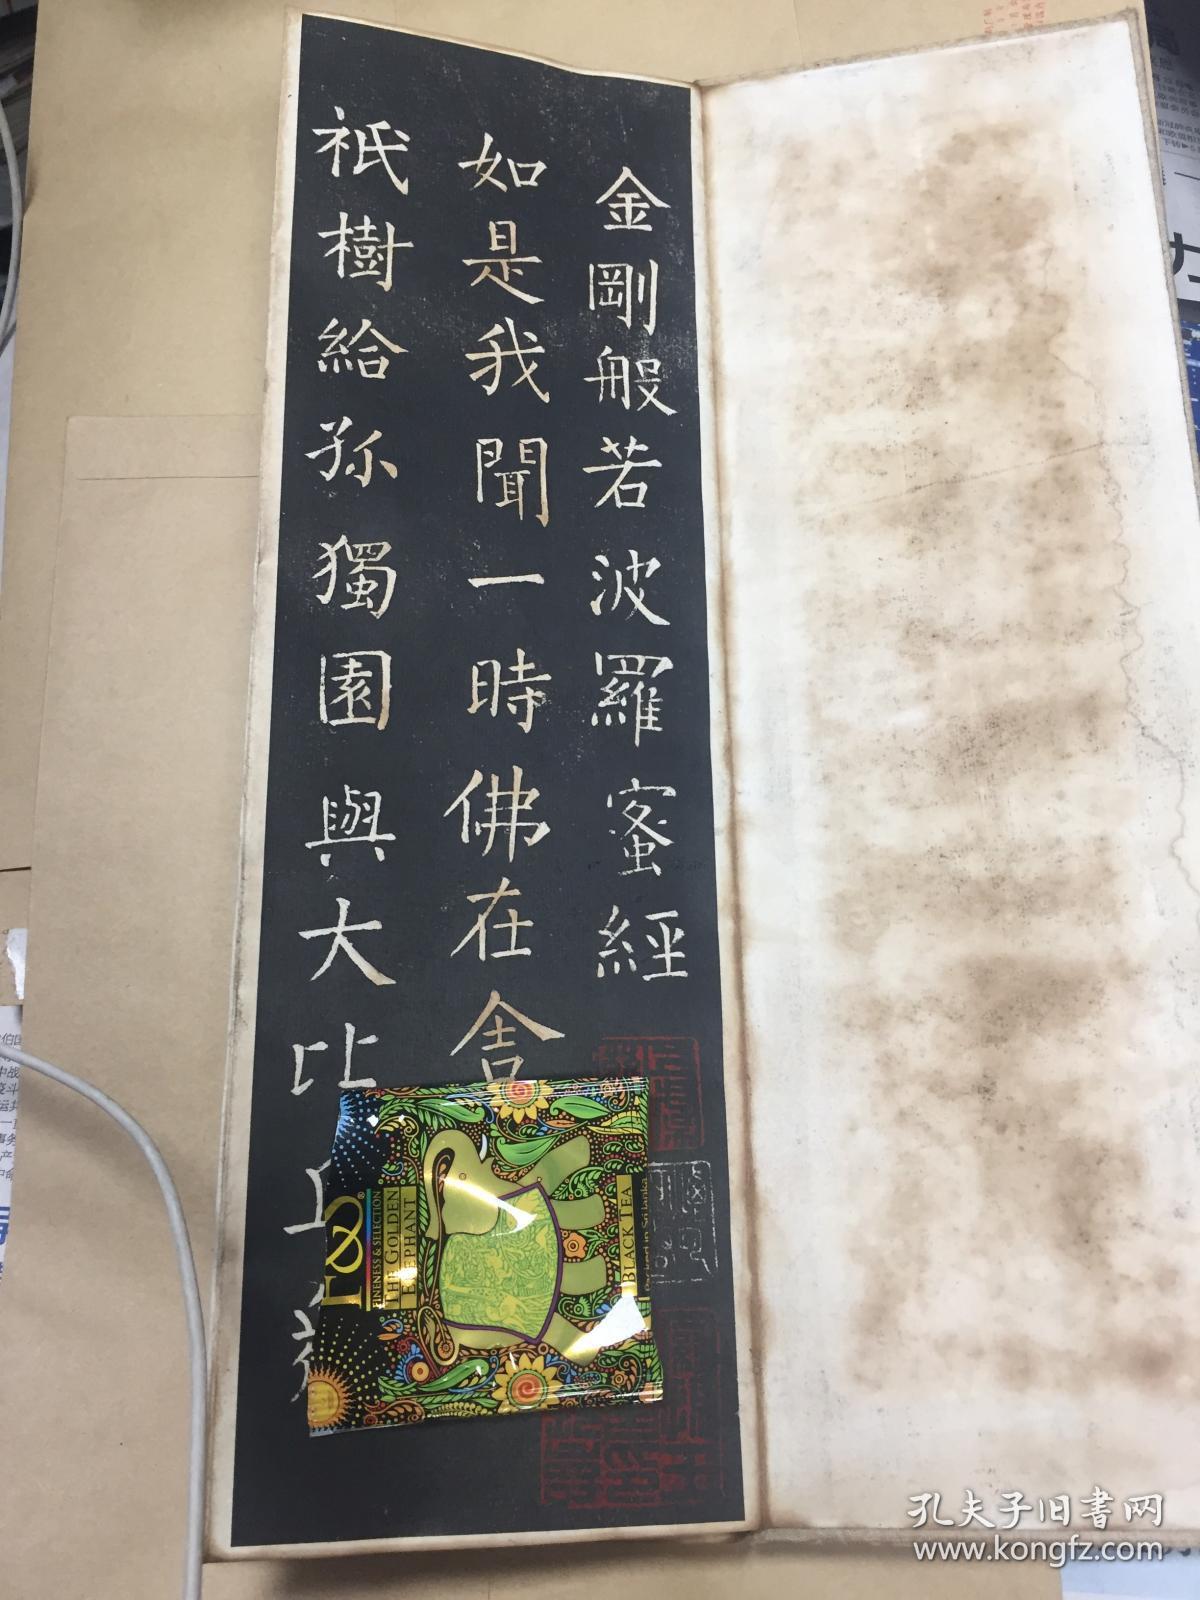 金剛般若波羅蜜經
如是我聞一時佛在舍
祇樹給孤獨園與大比丘
FINENESS & SELECTION
THE GOLDEN
ELEPHANT
BLACK TEA
Packed in Sri lanka
孔夫子旧书网
www.kongfz.com